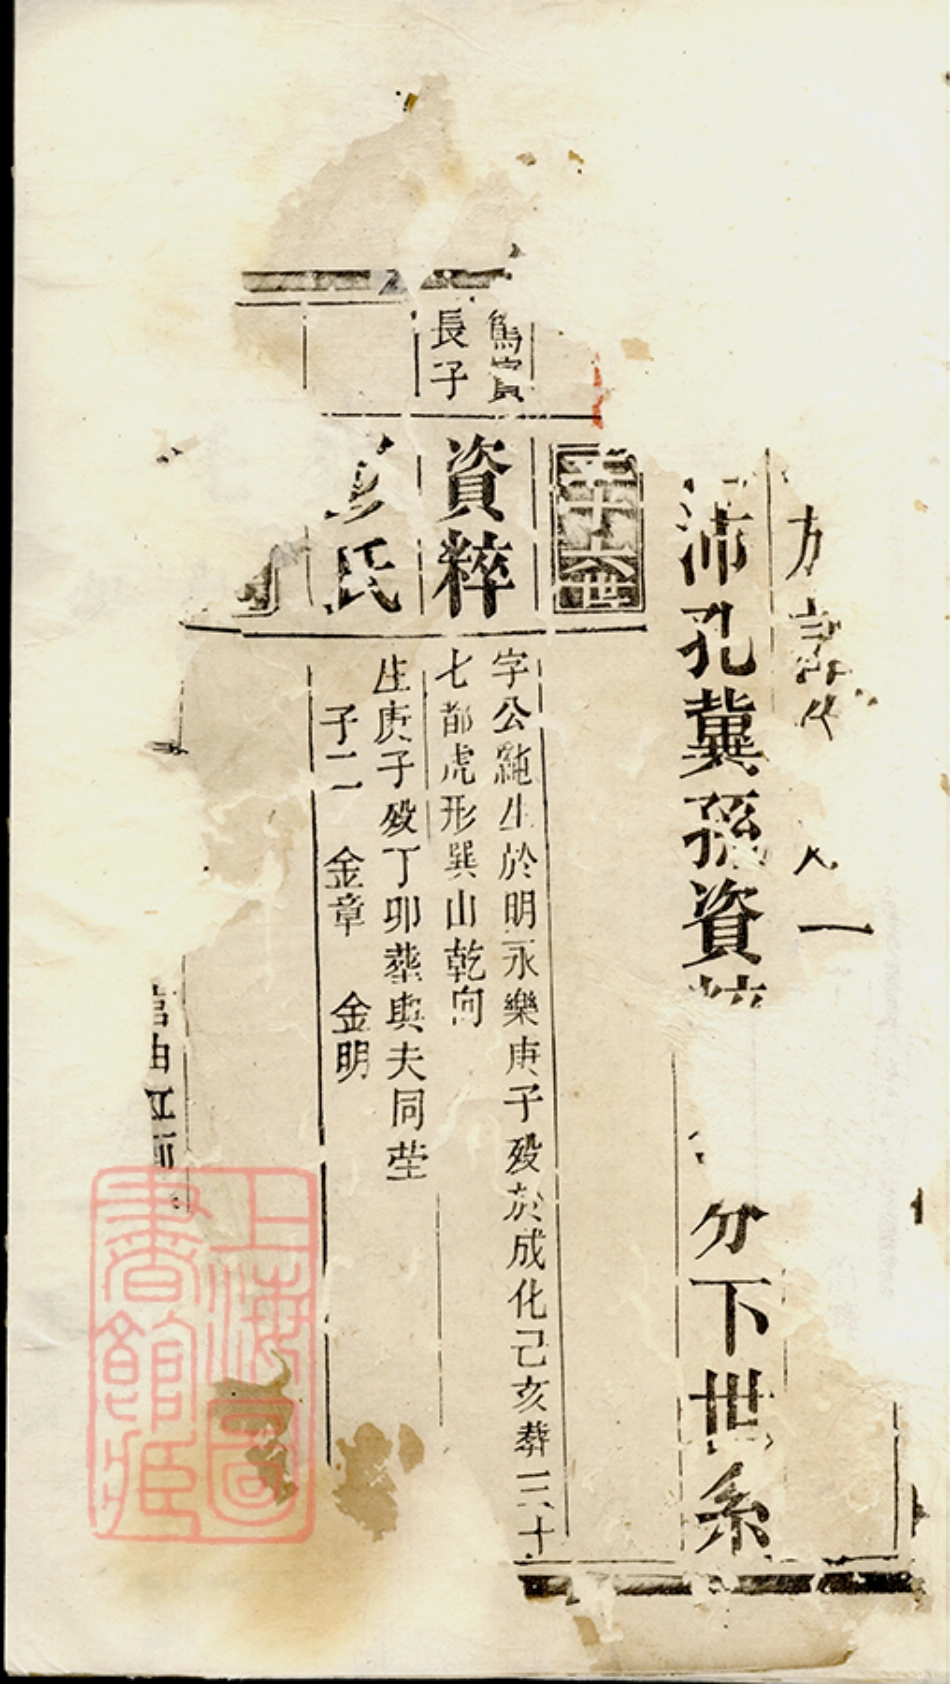 一
沛孔冀孫資
分下世系
二十六世
篤實
長子
資粹
字公純生於明永樂庚子歿於成化己亥葬三十
七都虎形巽山乾向
彭氏
生庚子歿丁卯葬與夫同塋
子二 金章 金明
上海圖
書館藏